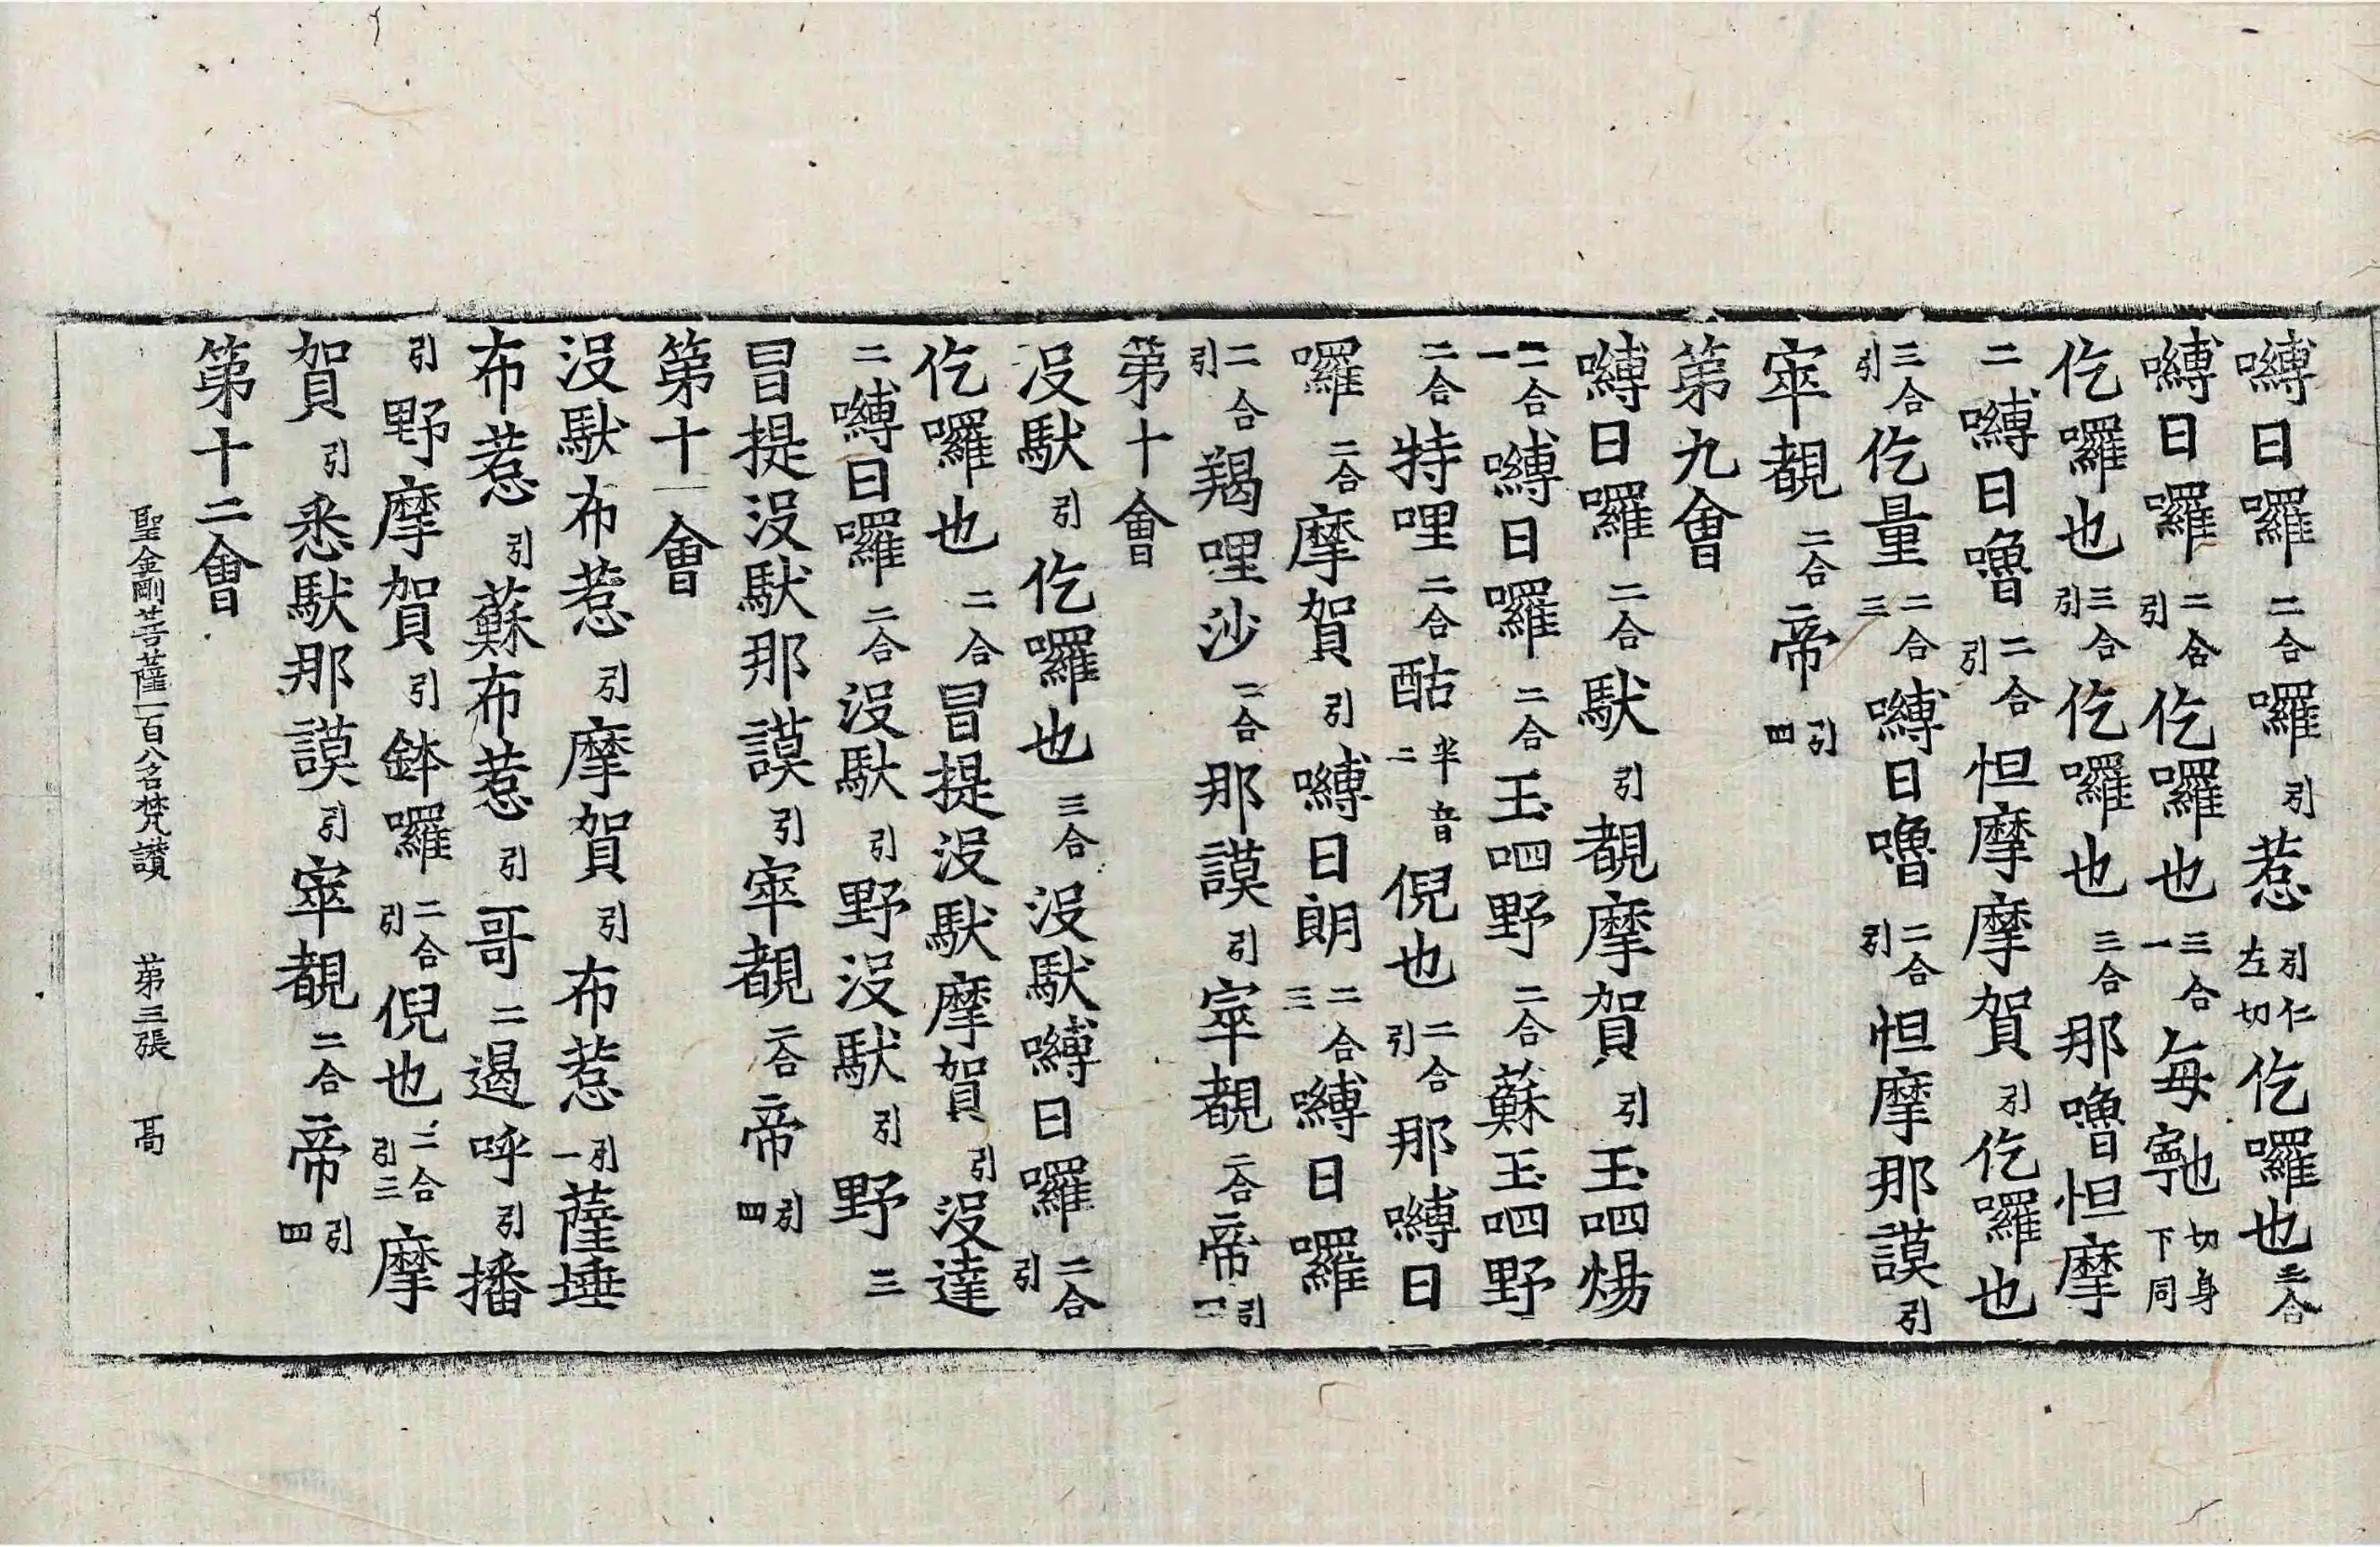 嚩日囉二合囉引惹引仁左切仡囉也三合
嚩日囉二合引仡囉也三合一每寧也切身下同
仡囉也三合引仡囉也三合那嚕怛摩
二嚩日嚕二合引怛摩摩賀引仡囉也
三合引仡量二合三嚩日嚕二合引怛摩那謨引
窣覩二合帝引四
第九會
嚩日囉二合馱引覩摩賀引玉呬煬
二合一嚩日囉二合玉呬野二合蘇玉呬野
二合特哩二合酤半音二倪也二合引那嚩日
囉二合摩賀引嚩日朗二合三嚩日囉
二合引羯哩沙二合那謨引窣覩二合帝引四
第十會
沒馱引仡囉也三合沒馱嚩日囉二合引
仡囉也二合冒提沒馱摩賀引沒達
二嚩日囉二合沒馱引野沒馱引野三
冒提沒馱那謨引窣覩二合帝引四
第十一會
沒馱布惹引摩賀引布惹引一薩埵
布惹引蘇布惹引哥二遏呼引播
引野摩賀引鉢囉二合引倪也二合引三摩
賀引悉馱那謨引窣覩二合帝引四
第十二會
聖金剛菩薩一百八名梵讚　第三張　髙